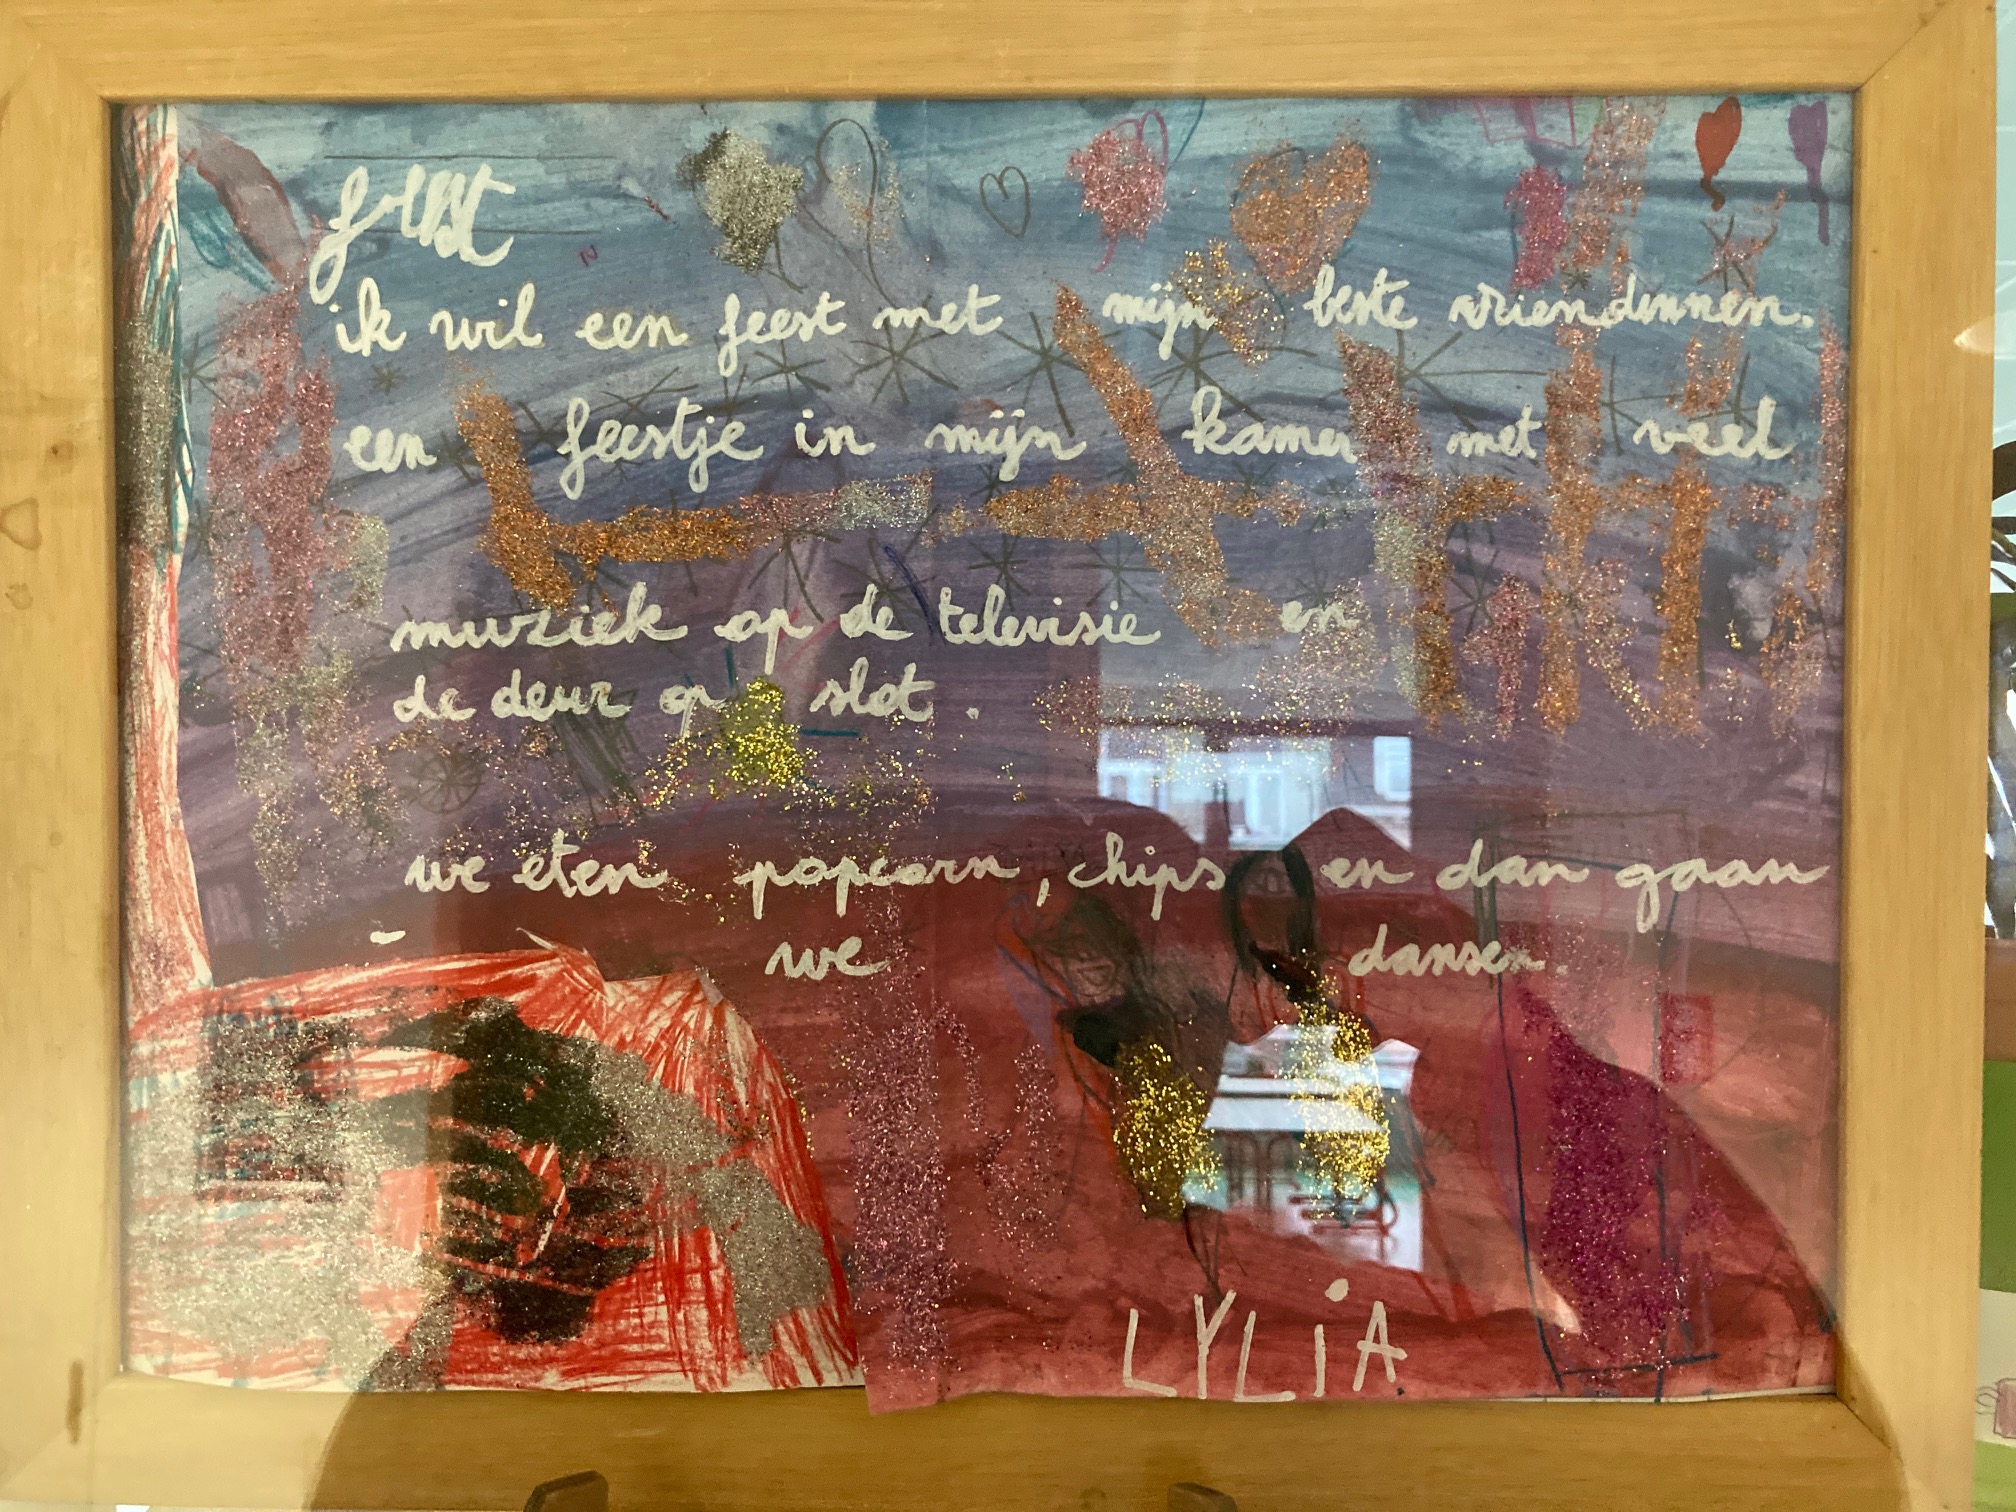 feest
ik wil een feest met mijn beste vriendinnen.
een feestje in mijn kamer met veel
muziek op de televisie en
de deur op slot.
we eten popcorn, chips en dan gaan
we dansen.
LYLiA